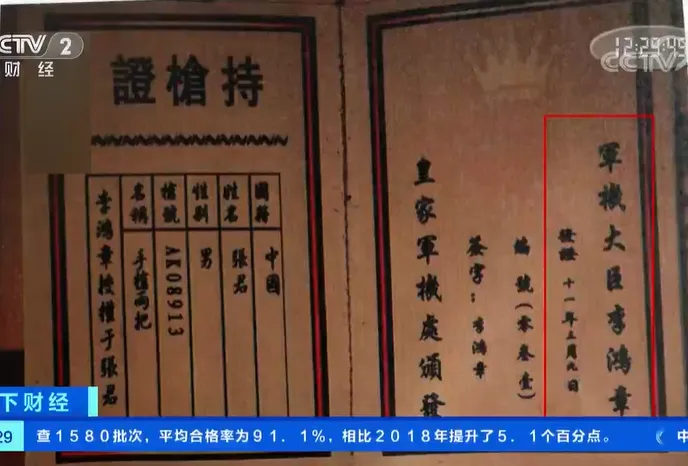 CCTV 2
财经
12:29:45
CCTV
持槍證
國籍 中國
姓名 張君
性别 男
槍號 AK08913
名稱 手槍兩把
李鴻章授權于張君
軍機大臣李鴻章
發證 十一年三月九日
編號（零叁壹）
簽字：李鴻章
皇家軍機處頒發
下财经
29
查1580批次，平均合格率为91.1%，相比2018年提升了5.1个百分点。
中